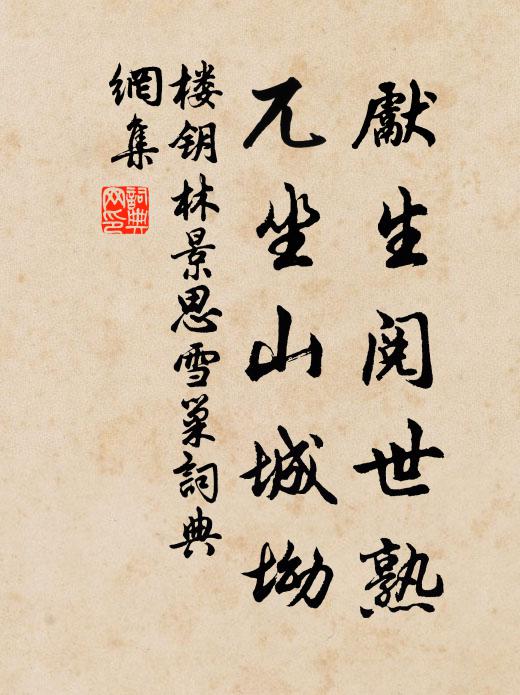 獻生阅世熟
兀坐山城坳
楼钥林景思雪巢詞典
網集
詞典
网印